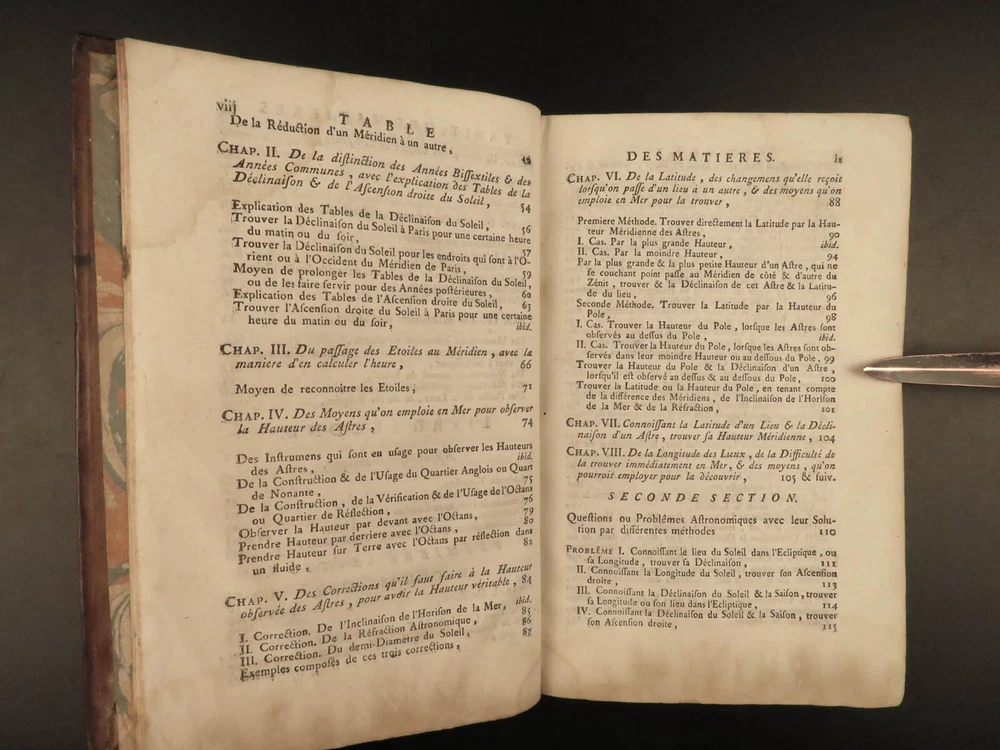 viij
TABLE
De la Réduction d'un Méridien à un autre,
CHAP. II. De la distinction des Années Bissextiles & des
Années Communes, avec l'explication des Tables de la
Déclinaison & de l'Ascension droite du Soleil, 54
Explication des Tables de la Déclinaison du Soleil, 56
Trouver la Déclinaison du Soleil à Paris pour une certaine heure
du matin ou du soir, 57
Trouver la Déclinaison du Soleil pour les endroits qui sont à l'O-
rient ou à l'Occident du Méridien de Paris, 59
Moyen de prolonger les Tables de la Déclinaison du Soleil,
ou de les faire servir pour des Années postérieures, 60
Explication des Tables de l'Ascension droite du Soleil, 63
Trouver l'Ascension droite du Soleil à Paris pour une certaine
heure du matin ou du soir, ibid.
CHAP. III. Du passage des Etoiles au Méridien, avec la
maniere d'en calculer l'heure, 66
Moyen de reconnoître les Etoiles, 71
CHAP. IV. Des Moyens qu'on emploie en Mer pour observer
la Hauteur des Astres, 74
Des Instrumens qui sont en usage pour observer les Hauteurs
des Astres, ibid.
De la Construction & de l'Usage du Quartier Anglois ou Quart
de Nonante, 75
De la Construction, de la Vérification & de l'Usage de l'Octans
ou Quartier de Réflection, 76
Observer la Hauteur par devant avec l'Octans, 79
Prendre Hauteur par derriere avec l'Octans, 80
Prendre Hauteur sur Terre avec l'Octans par réflection dans
un fluide, 82
CHAP. V. Des Corrections qu'il faut faire à la Hauteur
observée des Astres, pour avoir la Hauteur véritable, 84
I. Correction. De l'Inclinaison de l'Horison de la Mer, ibid.
II. Correction. De la Réfraction Astronomique, 85
III. Correction. Du demi-Diametre du Soleil, 86
Exemples composés de ces trois corrections, 87
DES MATIERES. ix
CHAP. VI. De la Latitude, des changemens qu'elle reçoit
lorsqu'on passe d'un lieu à un autre, & des moyens qu'on
emploie en Mer pour la trouver, 88
Premiere Méthode. Trouver directement la Latitude par la Hau-
teur Méridienne des Astres, 90
I. Cas. Par la plus grande Hauteur, ibid.
II. Cas. Par la moindre Hauteur, 94
Par la plus grande & la plus petite Hauteur d'un Astre, qui ne
se couchant point passe au Méridien de côté & d'autre du
Zénit, trouver & la Déclinaison de cet Astre & la Latitu-
de du lieu, 96
Seconde Méthode. Trouver la Latitude par la Hauteur du
Pole, 98
I. Cas. Trouver la Hauteur du Pole, lorsque les Astres sont
observés au dessus du Pole, ibid.
II. Cas. Trouver la Hauteur du Pole, lorsque les Astres sont ob-
servés dans leur moindre Hauteur ou au dessous du Pole, 99
Trouver la Hauteur du Pole & la Déclinaison d'un Astre,
lorsqu'il est observé au dessus & au dessous du Pole, 100
Trouver la Latitude ou la Hauteur du Pole, en tenant compte
de la différence des Méridiens, de l'Inclinaison de l'Horison
de la Mer & de la Réfraction, 101
CHAP. VII. Connoissant la Latitude d'un Lieu & la Décli-
naison d'un Astre, trouver sa Hauteur Méridienne, 104
CHAP. VIII. De la Longitude des Lieux, de la Difficulté de
la trouver immédiatement en Mer, & des moyens, qu'on
pourroit employer pour la découvrir, 105 & suiv.
SECONDE SECTION.
Questions ou Problêmes Astronomiques avec leur Solu-
tion par différentes méthodes 110
PROBLÊME I. Connoissant le lieu du Soleil dans l'Ecliptique, ou
sa Longitude, trouver sa Déclinaison, 111
II. Connoissant la Longitude du Soleil, trouver son Ascension
droite, 113
III. Connoissant la Déclinaison du Soleil & la Saison, trouver
sa Longitude ou son lieu dans l'Ecliptique, 114
IV. Connoissant la Déclinaison du Soleil & la Saison, trouver
son Ascension droite, 115